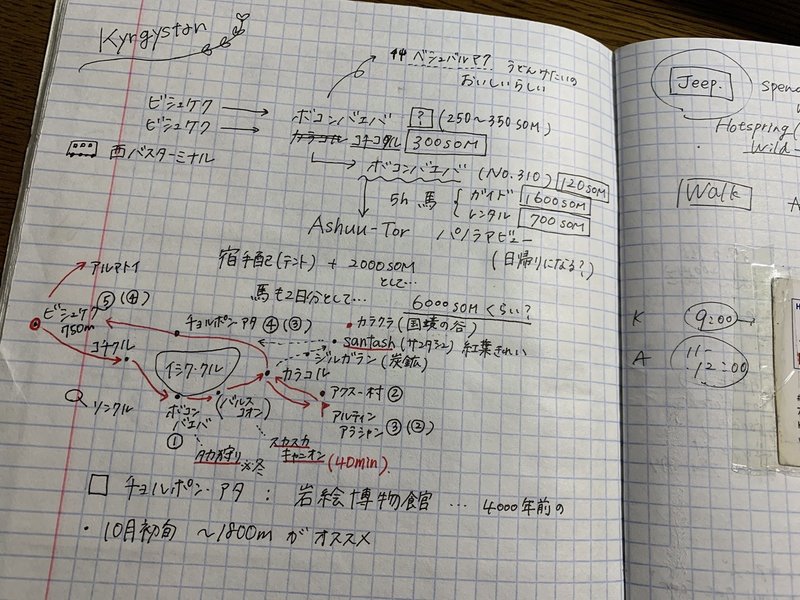 Kyrgystan
ベシュバルマク うどんみたいの
おいしいらしい
ビシュケク → ボコンバエバ ? (250〜350 SOM)
ビシュケク → カラコル コチコル 300 SOM
西バスターミナル
ボコンバエバ (NO.310) 120 SOM
5h 馬 { ガイド 1600 SOM
レンタル 700 SOM
Ashuu-Tor パノラマビュー
(日帰りになる?)
宿手配(テント) + 2000 SOM
として…
馬も2日分として… 6000 SOM くらい?
アルマトイ
ビシュケク ⑤(④)
750m
コチコル
ソンクル
チョルポン・アタ ④(③)
イシク・クル
ボコン
バエバ
①
(バルス
コオン)
カラコル
・カラクラ (国境の谷)
・santash (サンタシュ) 紅葉きれい
・ジルガラン (炭鉱)
・アクスー村 ②
アルティン
アラシャン ③(②)
タカ狩り ※冬
スカスカ
キャニオン (40min)
□ チョルポン・アタ : 岩絵博物館 … 4000年前の
・10月初旬 〜1800m がオススメ
Jeep.
spend
Hotspring (
Wild
Walk
K 9:00
A 11-
12:00